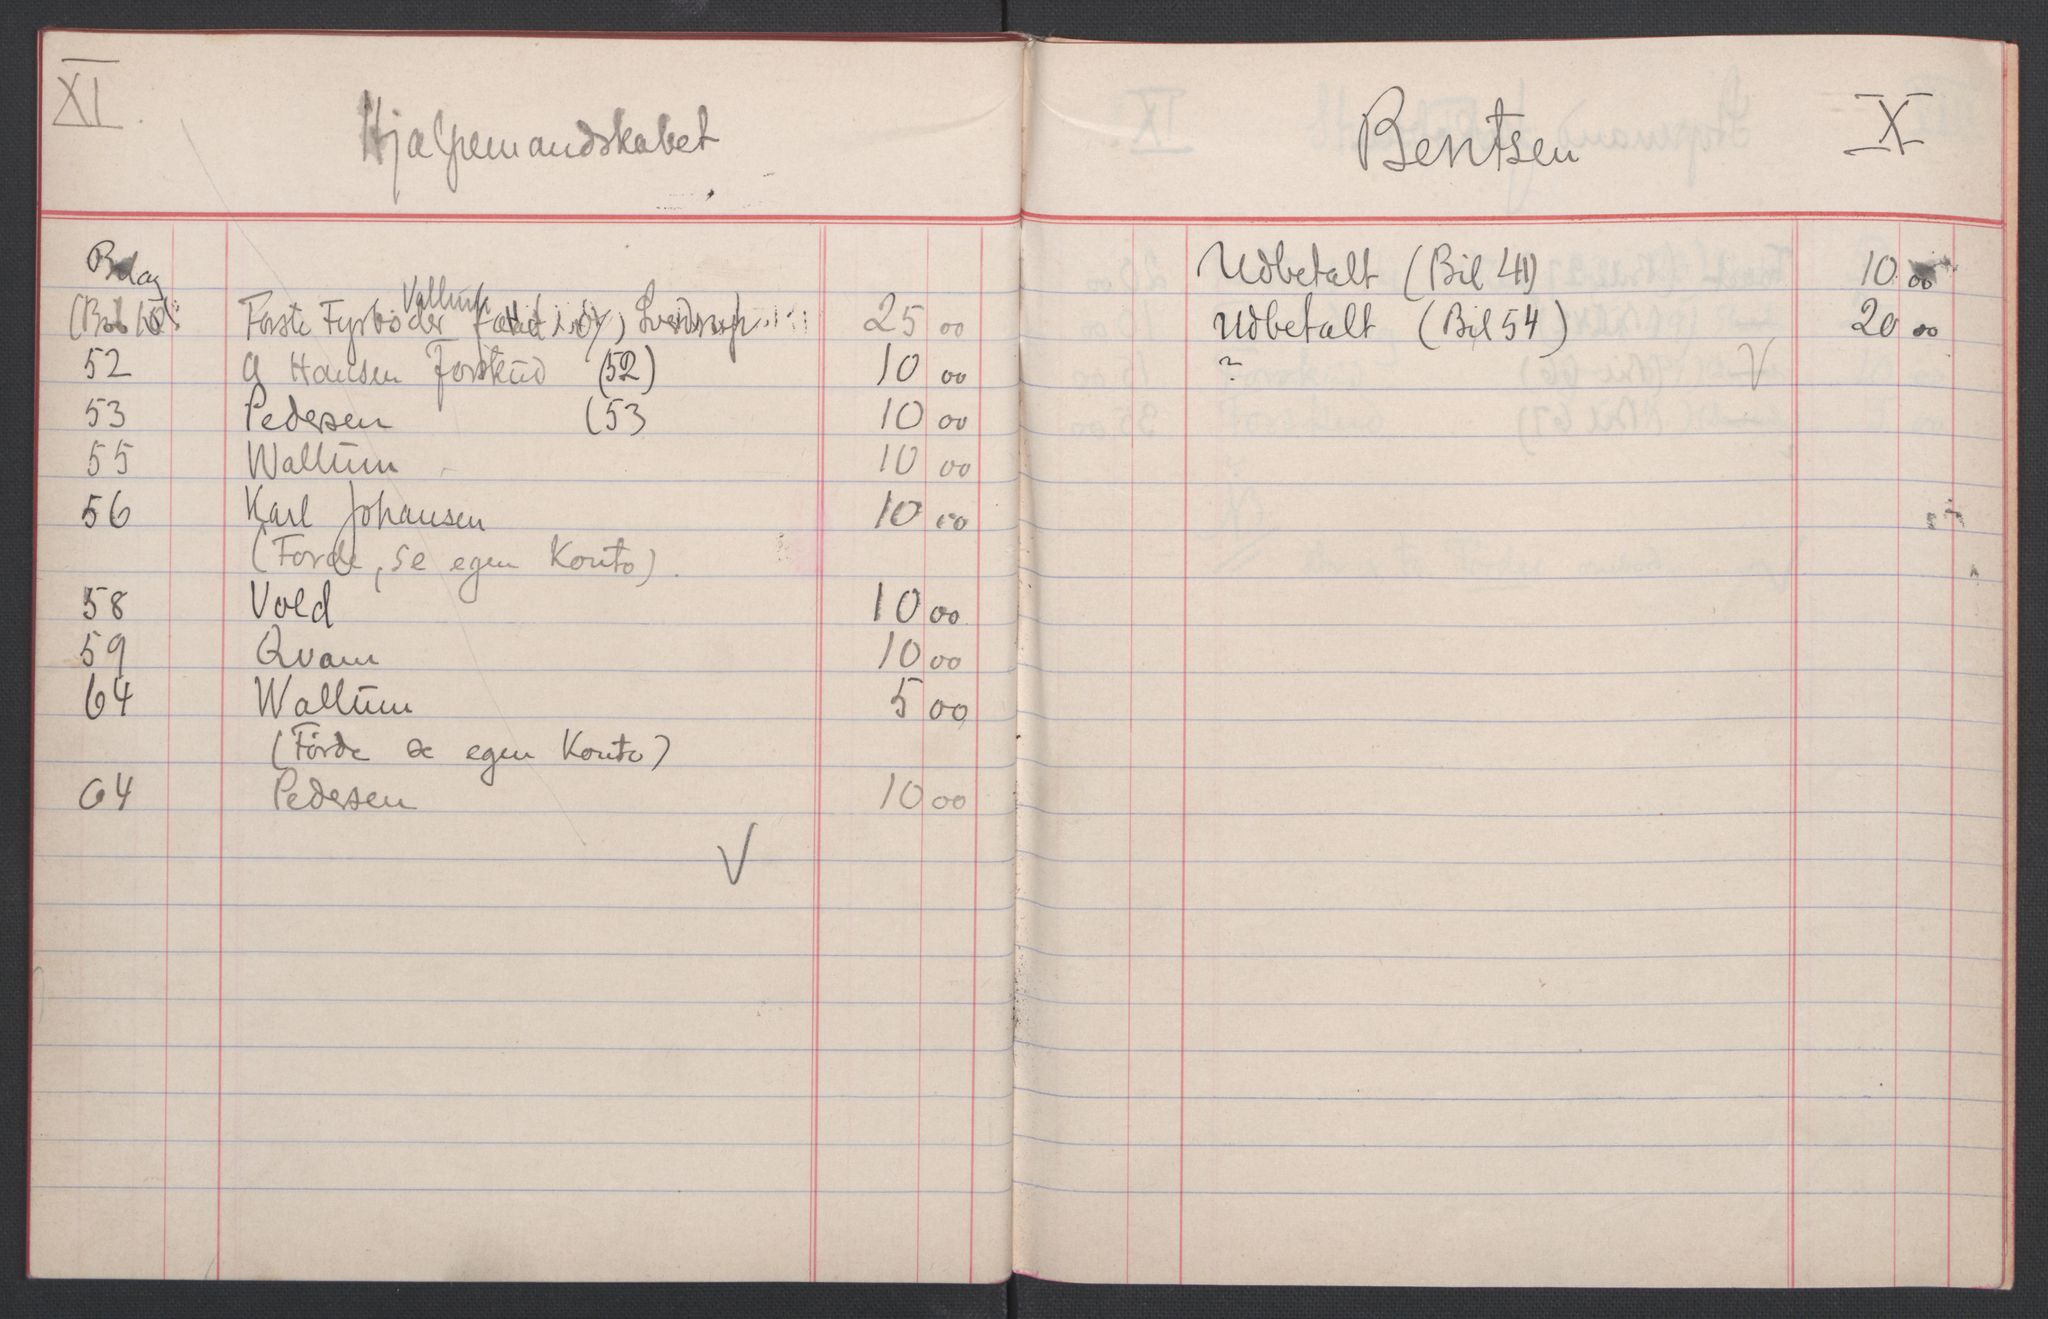 XI
Hjælpemandskabet
Bilag
Første Fyrbøder Vallum 25 00
52 A Hansen Forskud (52) 10 00
53 Pedersen (53 10 00
55 Wallum 10 00
56 Karl Johansen 10 00
(Førde, se egen Konto).
58 Vold 10 00
59 Qvam 10 00
64 Wallum 5 00
(Førde se egen Konto)
64 Pedersen 10 00
V
Bentsen X
Udbetalt (Bil 41) 10 00
Udbetalt (Bil 54) 20 00
? V